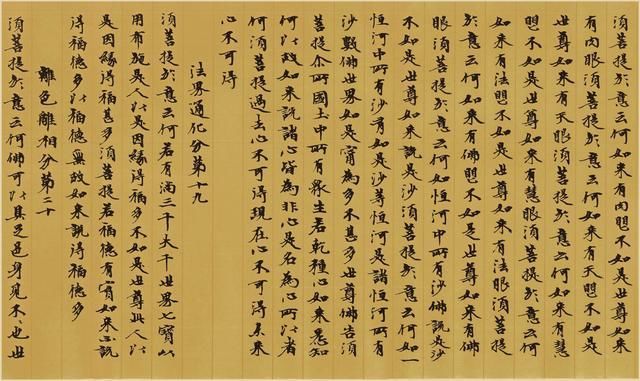 須菩提於意云何如來有肉眼不如是世尊如來
有肉眼須菩提於意云何如來有天眼不如是
世尊如來有天眼須菩提於意云何如來有慧
眼不如是世尊如來有慧眼須菩提於意云何
如來有法眼不如是世尊如來有法眼須菩提
於意云何如來有佛眼不如是世尊如來有佛
眼須菩提於意云何如恒河中所有沙佛說是沙
不如是世尊如來說是沙須菩提於意云何如一
恒河中所有沙有如是沙等恒河是諸恒河所有
沙數佛世界如是寧為多不甚多世尊佛告須
菩提尒所國土中所有眾生若乾種心如來悉知
何以故如來說諸心皆為非心是名為心所以者
何須菩提過去心不可得現在心不可得未來
心不可得
法界通化分第十九
須菩提於意云何若有滿三千大千世界七寶以
用布施是人以是因緣得福多不如是世尊此人以
是因緣得福甚多須菩提若福德有實如來不說
得福德多以福德無故如來說得福德多
離色離相分第二十
須菩提於意云何佛可以具足色身見不不也世